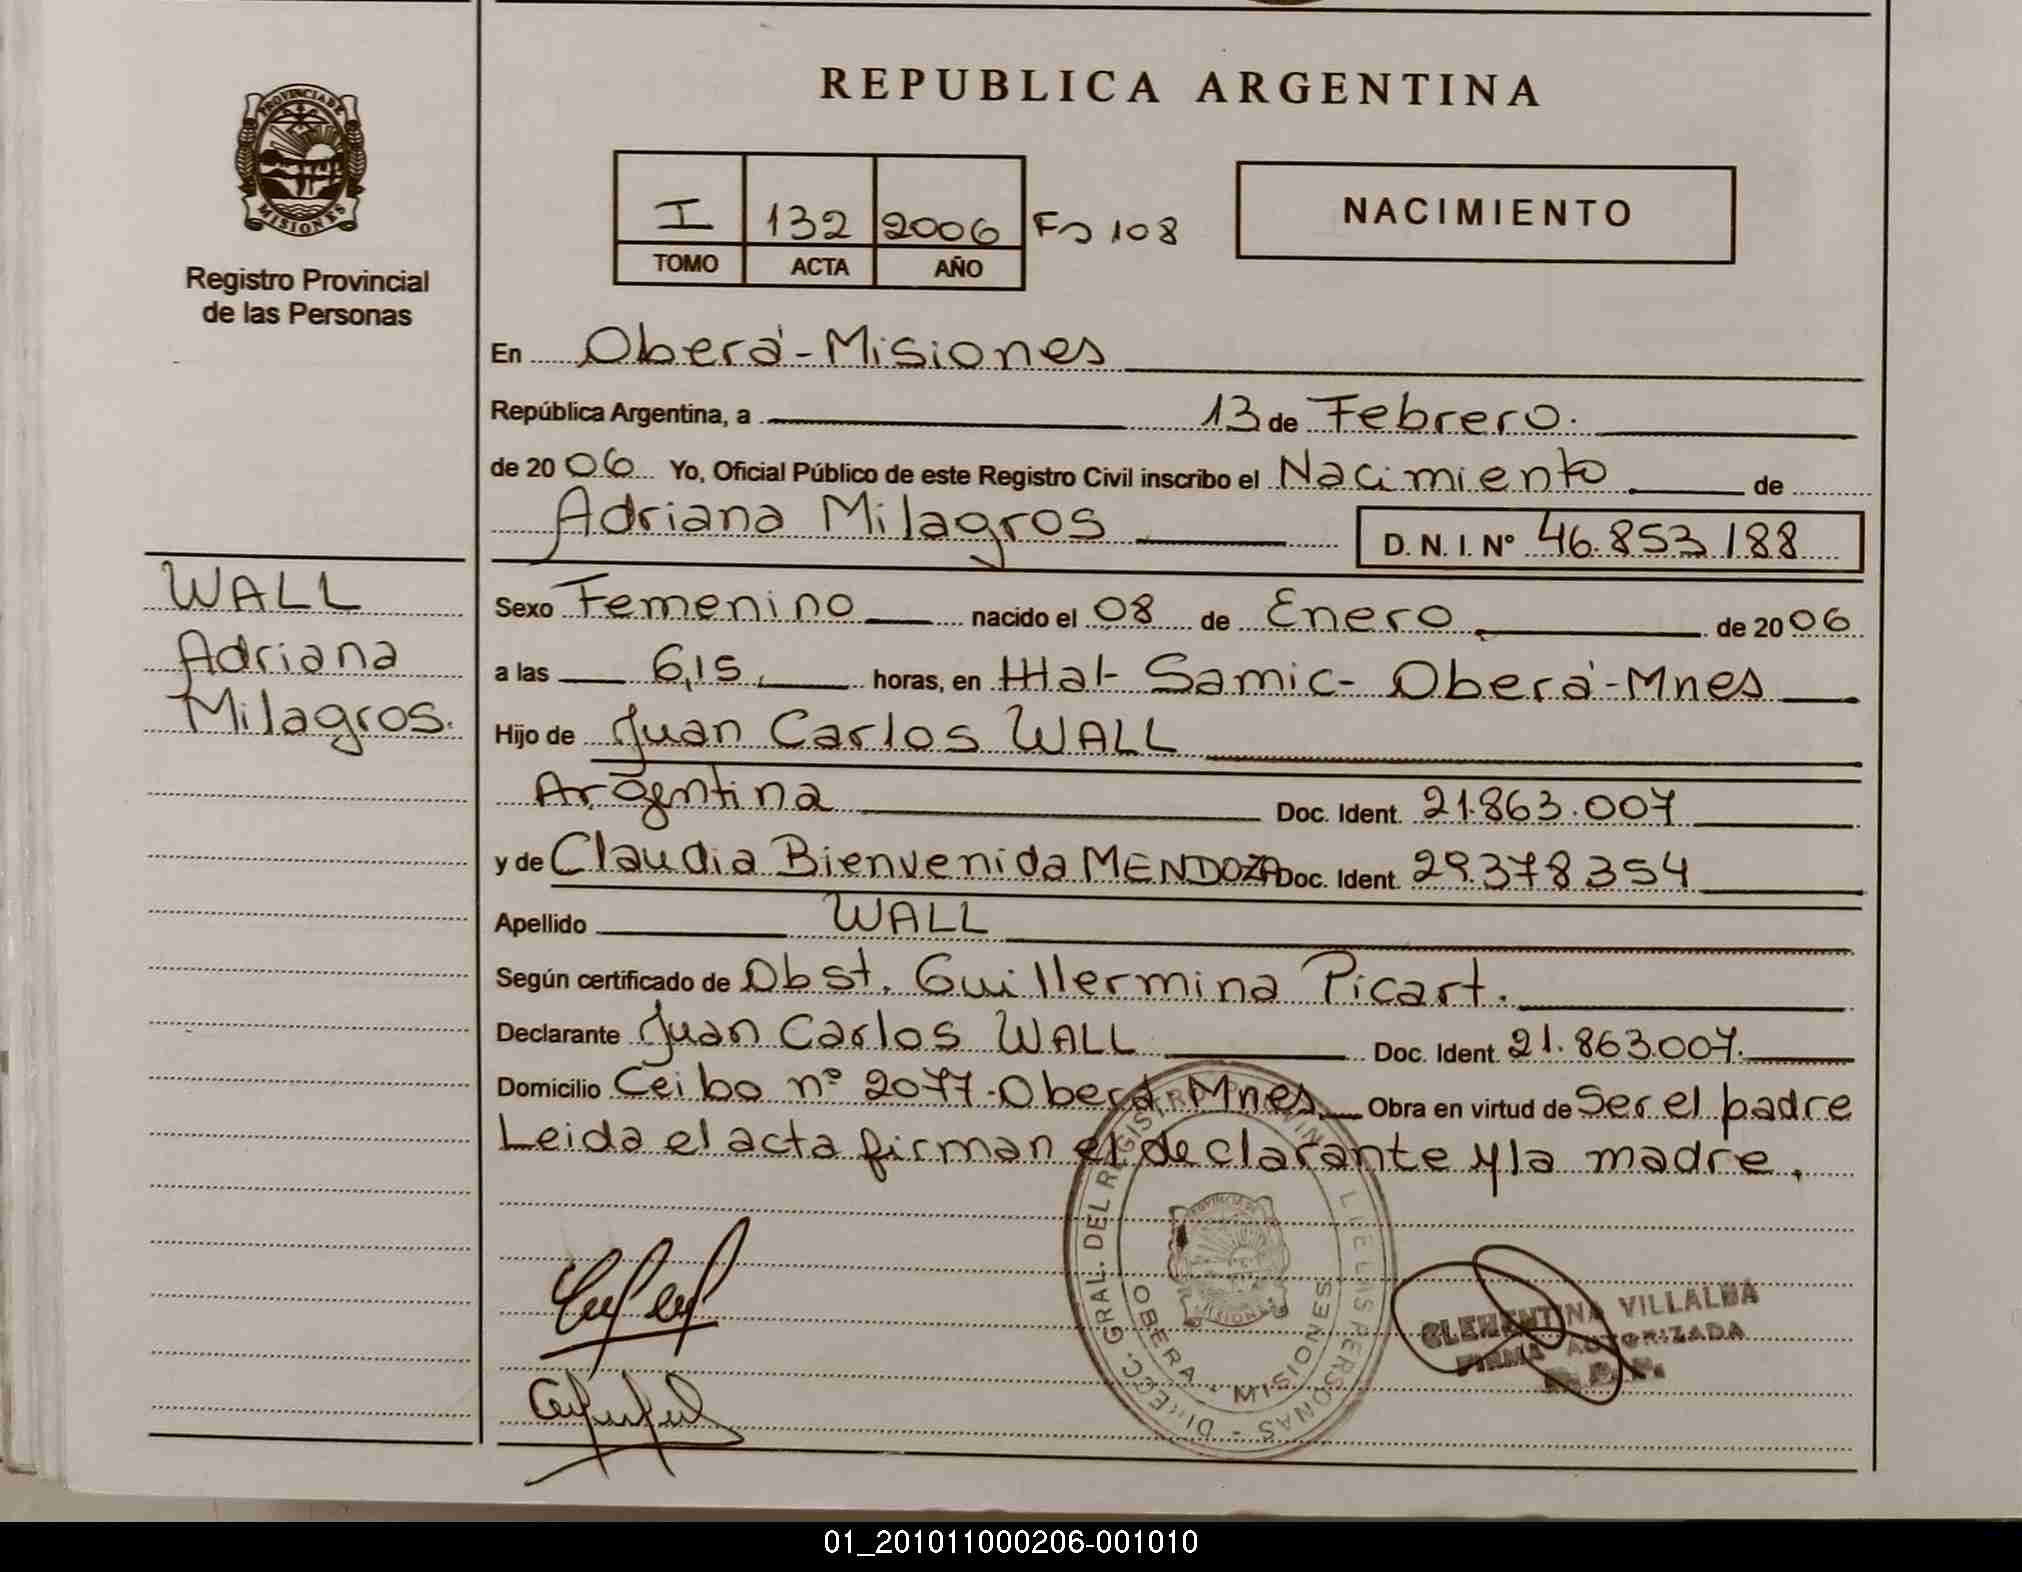 REPUBLICA ARGENTINA
PROVINCIA DE MISIONES
Registro Provincial
de las Personas
I 132 2006 Fº 108
TOMO ACTA AÑO
NACIMIENTO
En Oberá-Misiones
República Argentina, a 13 de Febrero.
de 2006 Yo, Oficial Público de este Registro Civil inscribo el Nacimiento de
Adriana Milagros D. N. I. Nº 46.853.188
WALL
Adriana
Milagros.
Sexo Femenino nacido el 08 de Enero de 2006
a las 6,15 horas, en Htal- Samic- Oberá-Mnes
Hijo de Juan Carlos WALL
Argentina Doc. Ident. 21.863.007
y de Claudia Bienvenida MENDOZA Doc. Ident. 29.378.354
Apellido WALL
Según certificado de Obst. Guillermina Picart.
Declarante Juan Carlos WALL Doc. Ident. 21.863.007.
Domicilio Ceibo nº 2077-Oberá Mnes Obra en virtud de Ser el padre
Leida el acta firman el declarante y la madre.
DIRECC. GRAL. DEL REGISTRO PROVINCIAL DE LAS PERSONAS -
OBERA - MISIONES
CLEMENTINA VILLALBA
FIRMA AUTORIZADA
01_201011000206-001010